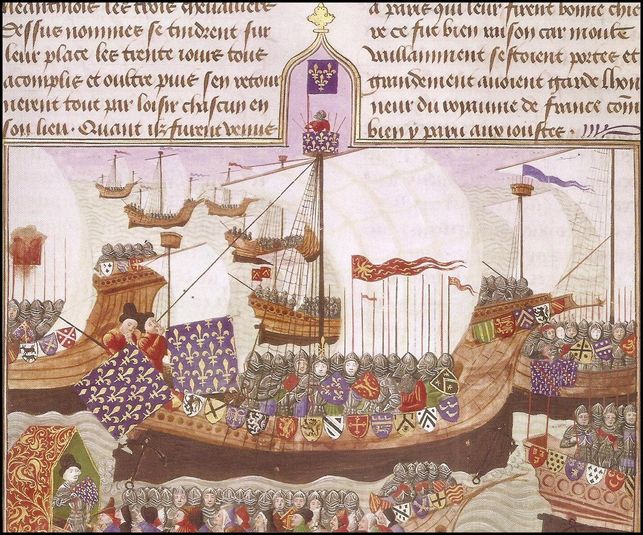 les trois chevaliers
dessus nommes se tindrent sur
leur place les trente iours tous
acomplis et oultre puis sen retour
nerent tout par loisir chascun en
son lieu. Quant ilz furent venus
a paris qui leur firent bonne chie
re ce fut bien raison car moult
vaillamment sestoient portes et
grandement auoient garde lhon
neur du royaume de france com
bien y paru aux ioustes.